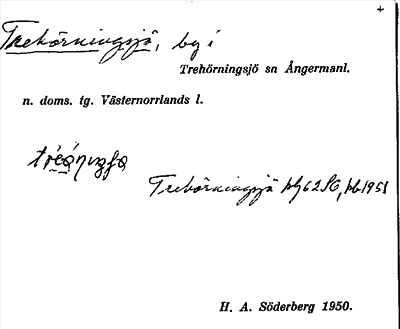 +
Trehörningsjö, by i
Trehörningsjö sn Ångermanl.
n. doms. tg. Västernorrlands l.
Trehörningsjö
H. A. Söderberg 1950.